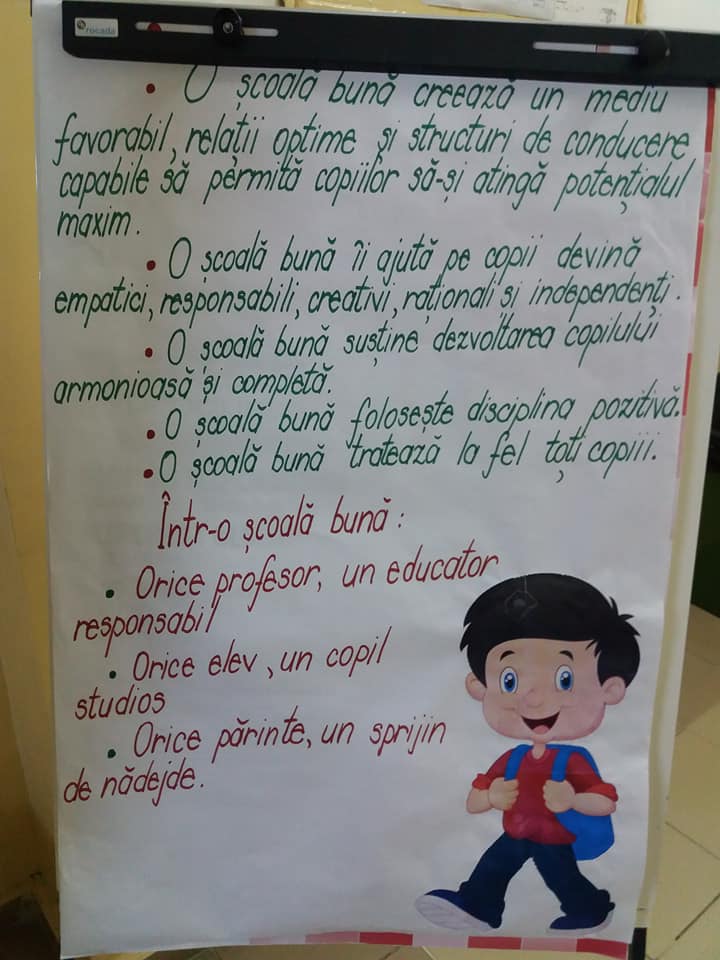 rocada
• O școală bună creează un mediu
favorabil, relații optime și structuri de conducere
capabile să permită copiilor să-și atingă potențialul
maxim.
• O școală bună îi ajută pe copii devină
empatici, responsabili, creativi, raționali și independenți.
• O școală bună susține dezvoltarea copilului
armonioasă și completă.
• O școală bună folosește disciplina pozitivă.
• O școală bună tratează la fel toți copiii.
Într-o școală bună:
• Orice profesor, un educator
responsabil
• Orice elev, un copil
studios
• Orice părinte, un sprijin
de nădejde.